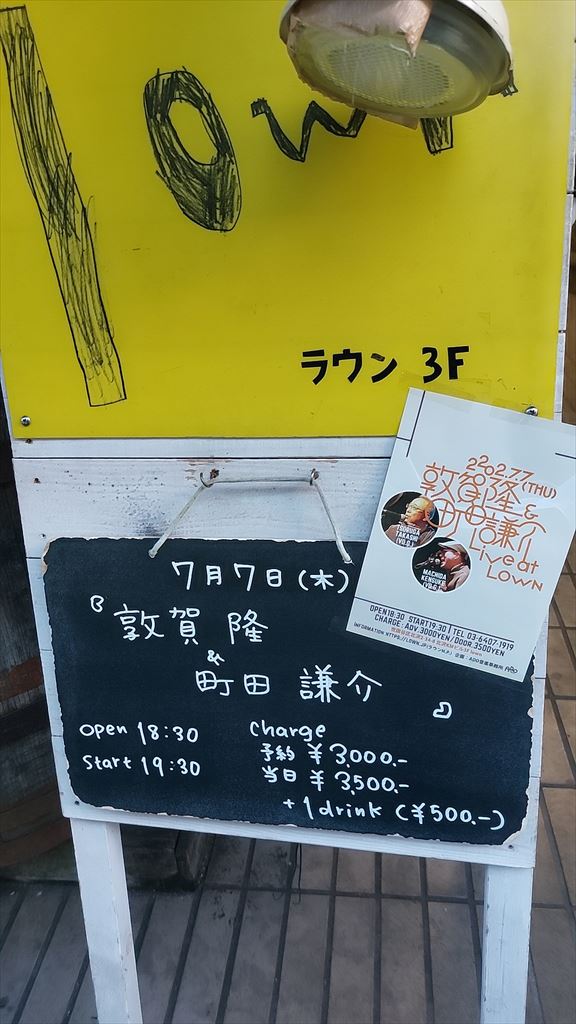 lown
ラウン 3F
2022.7.7(THU)
敦賀隆&
町田謙介
Live at
Lown
TSURUGA
TAKASHI
(VO.G.)
MACHIDA
KENSUKE
(VO.G.)
OPEN18:30 START19:30 | TEL 03-6407-1919
CHARGE: ADV.3000YEN/DOOR.3500YEN
7月7日(木)
『敦賀 隆
&
町田 謙介
』
open 18:30
Start 19:30
Charge
予約 ¥3,000.-
当日 ¥3,500.-
+1drink (¥500.-)